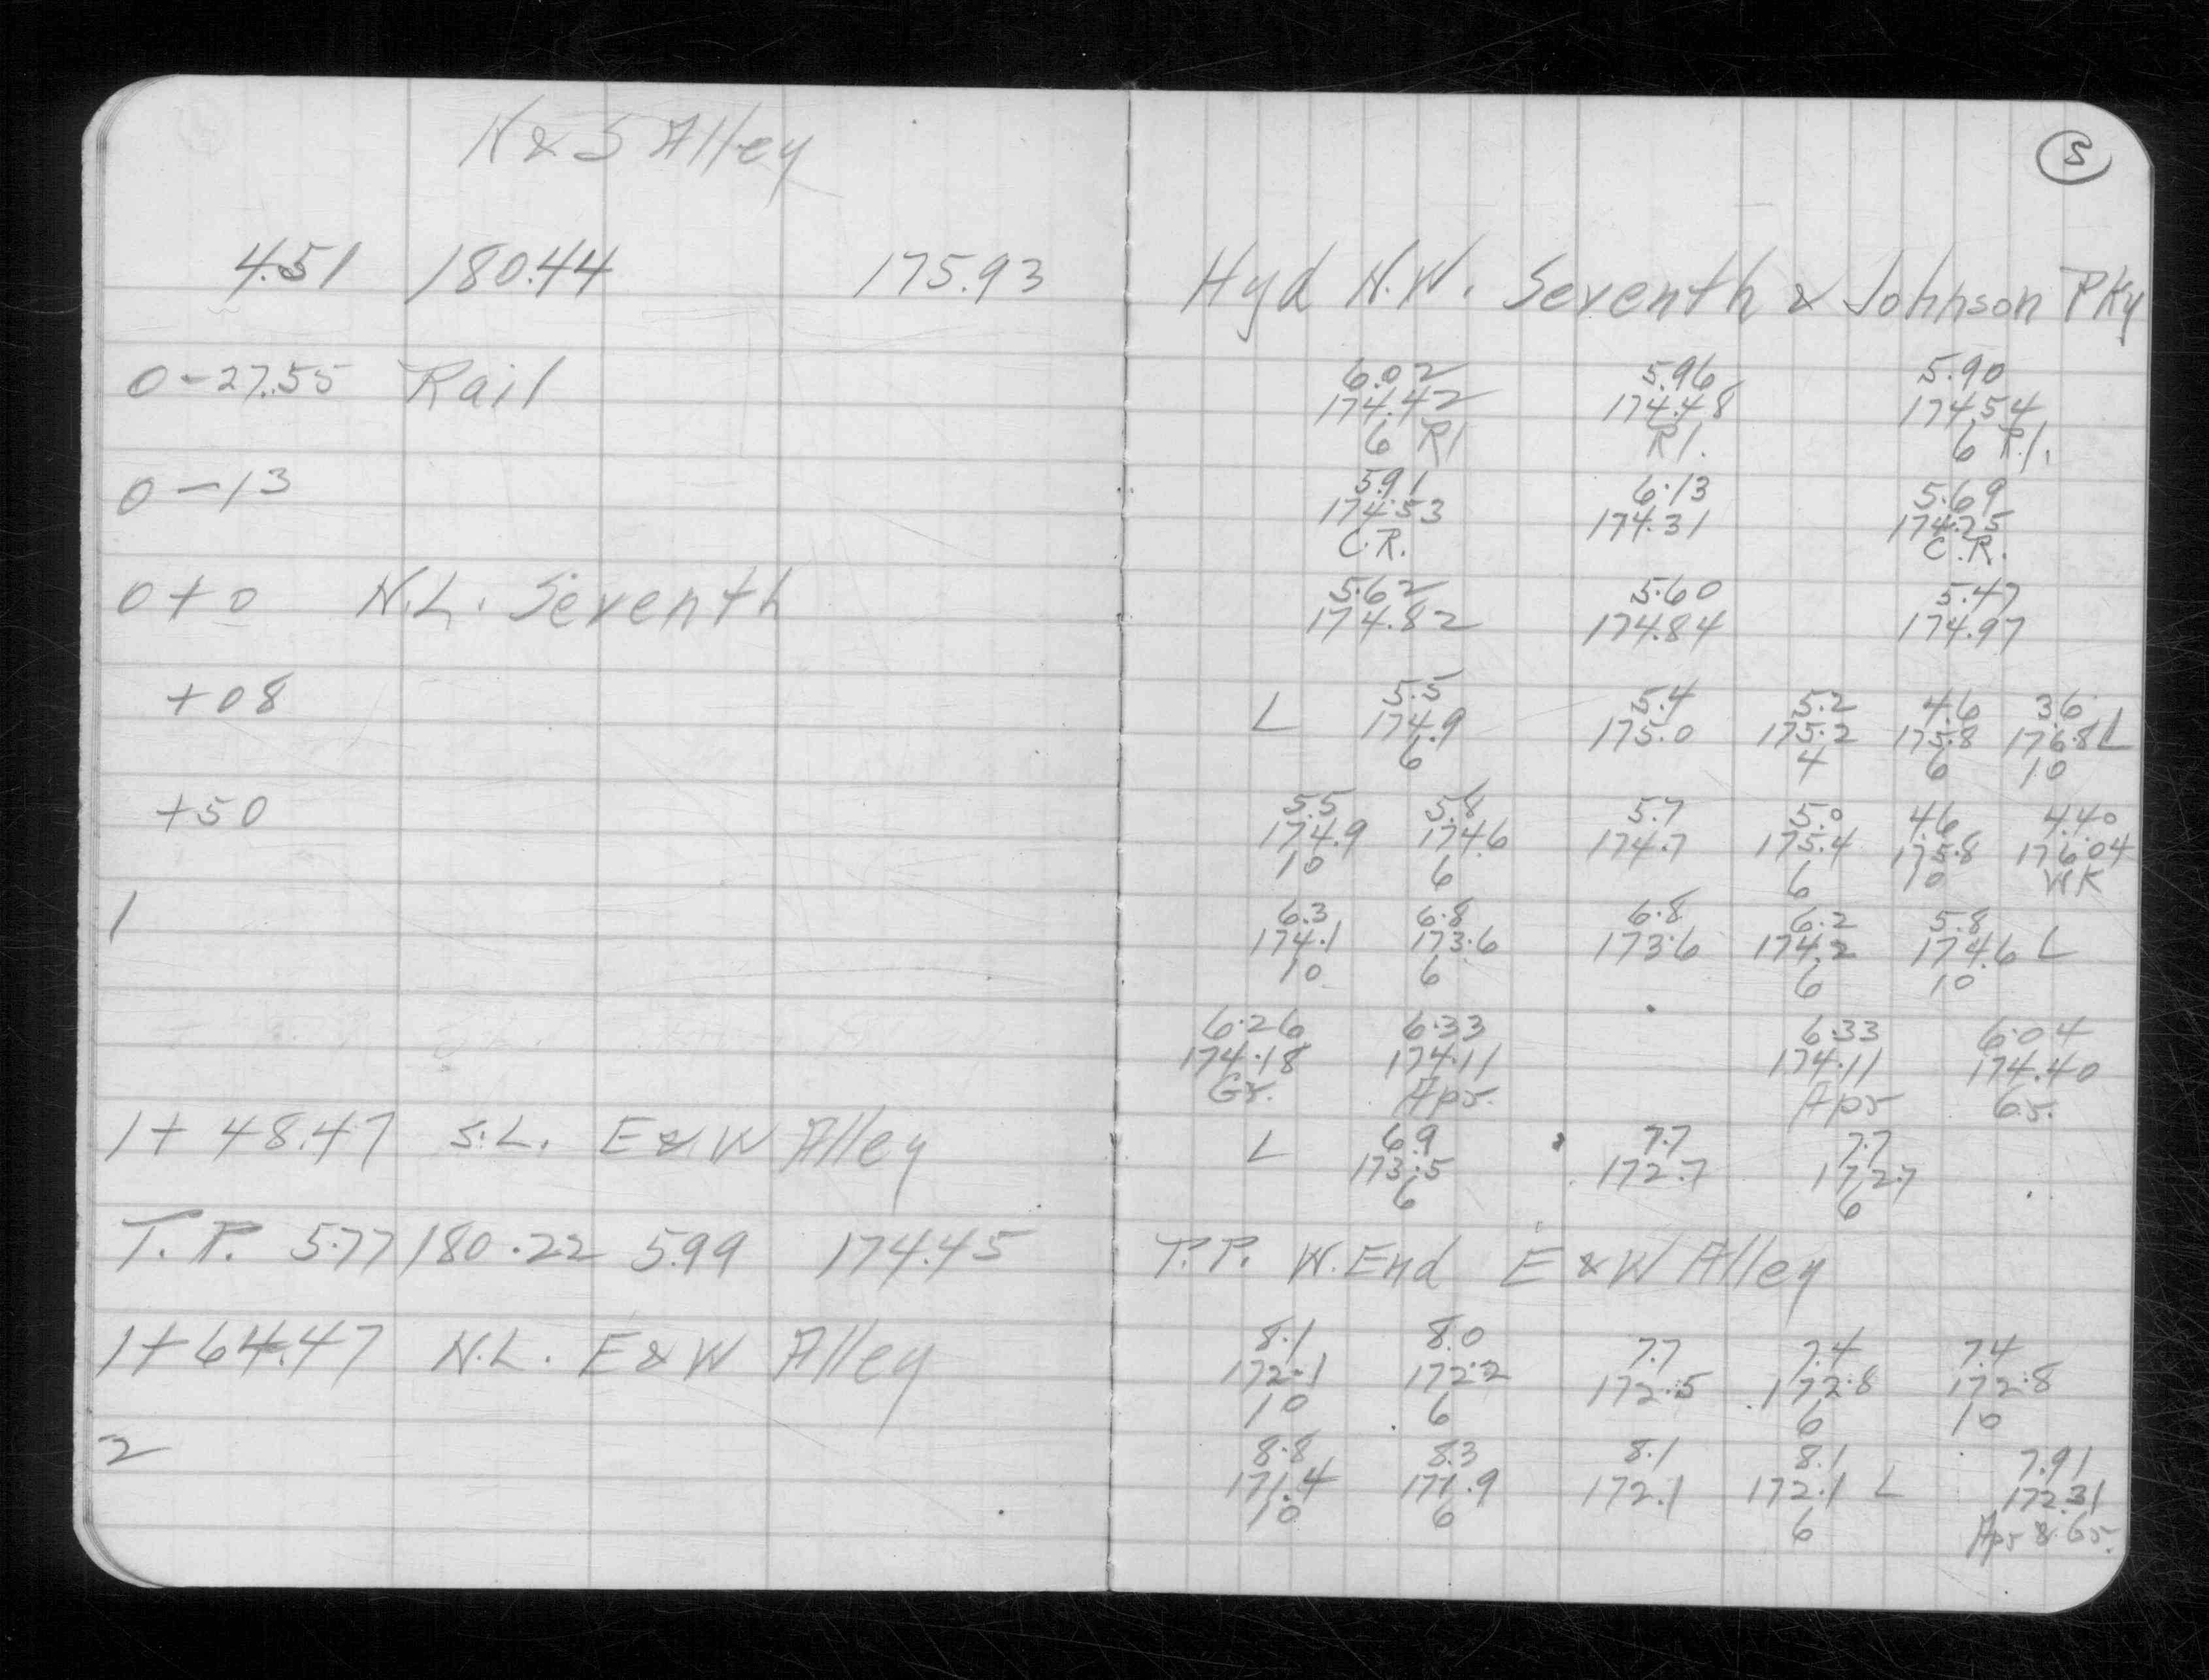 N & S Alley
5
4.51 180.44 175.93 Hyd N.W. Seventh & Johnson PKy
6.02 5.96 5.90
0-27.55 Rail 174.42 174.48 174.54
6 Rl Rl. 6 Rl.
5.91 6.13 5.69
0-13 174.53 174.31 174.25
C.R. C.R.
5.62 5.60 5.47
0+0 N.L. Seventh 174.82 174.84 174.97
5.5 5.4 5.2 4.6 3.6
+08 L 174.9 175.0 175.2 175.8 176.8 L
6 4 6 10
5.5 5.8 5.7 5.0 4.6 4.40
+50 174.9 174.6 174.7 175.4 175.8 176.04
10 6 6 10 WK
6.3 6.8 6.8 6.2 5.8
1 174.1 173.6 173.6 174.2 174.6 L
10 6 6 10
6.26 6.33 6.33 6.04
174.18 174.11 174.11 174.40
Gr. Apr. Apr Gr.
6.9 7.7 7.7
1+48.47 S.L. E & W Alley L 173.5 172.7 172.7
6 6
T.P. 5.77 180.22 5.99 174.45 T.P. W. End E & W Alley
8.1 8.0 7.7 7.4 7.4
1+64.47 N.L. E & W Alley 172.1 172.2 172.5 172.8 172.8
10 6 6 10
8.8 8.3 8.1 8.1 7.91
2 171.4 171.9 172.1 172.1 L 172.31
10 6 6 Apr & Gr.